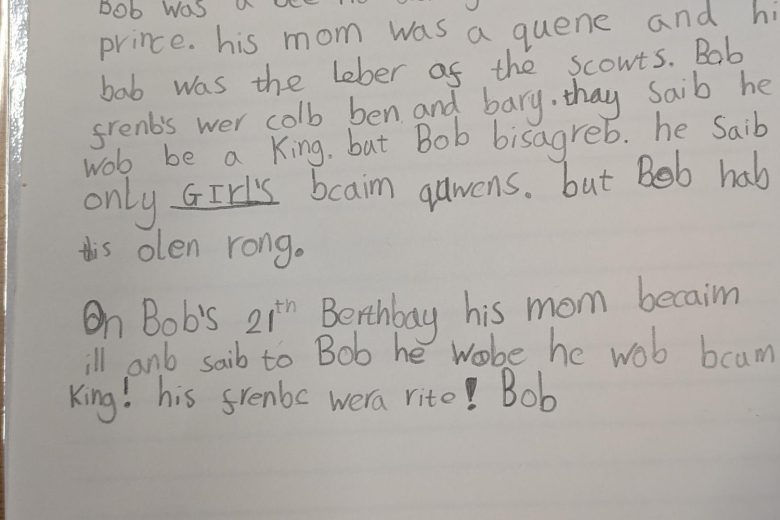 Bob was a bee
prince. his mom was a quene and hi
bab was the leber as the scowts. Bob
srenb's wer colb ben and bary. thay saib he
wob be a King. but Bob bisagreb. he Saib
only GIrl's bcaim quwens. but Bob hab
this olen rong.
On Bob's 21th Berthbay his mom becaim
ill anb saib to Bob he wobe he wob bcum
King! his srenbc wera rite! Bob